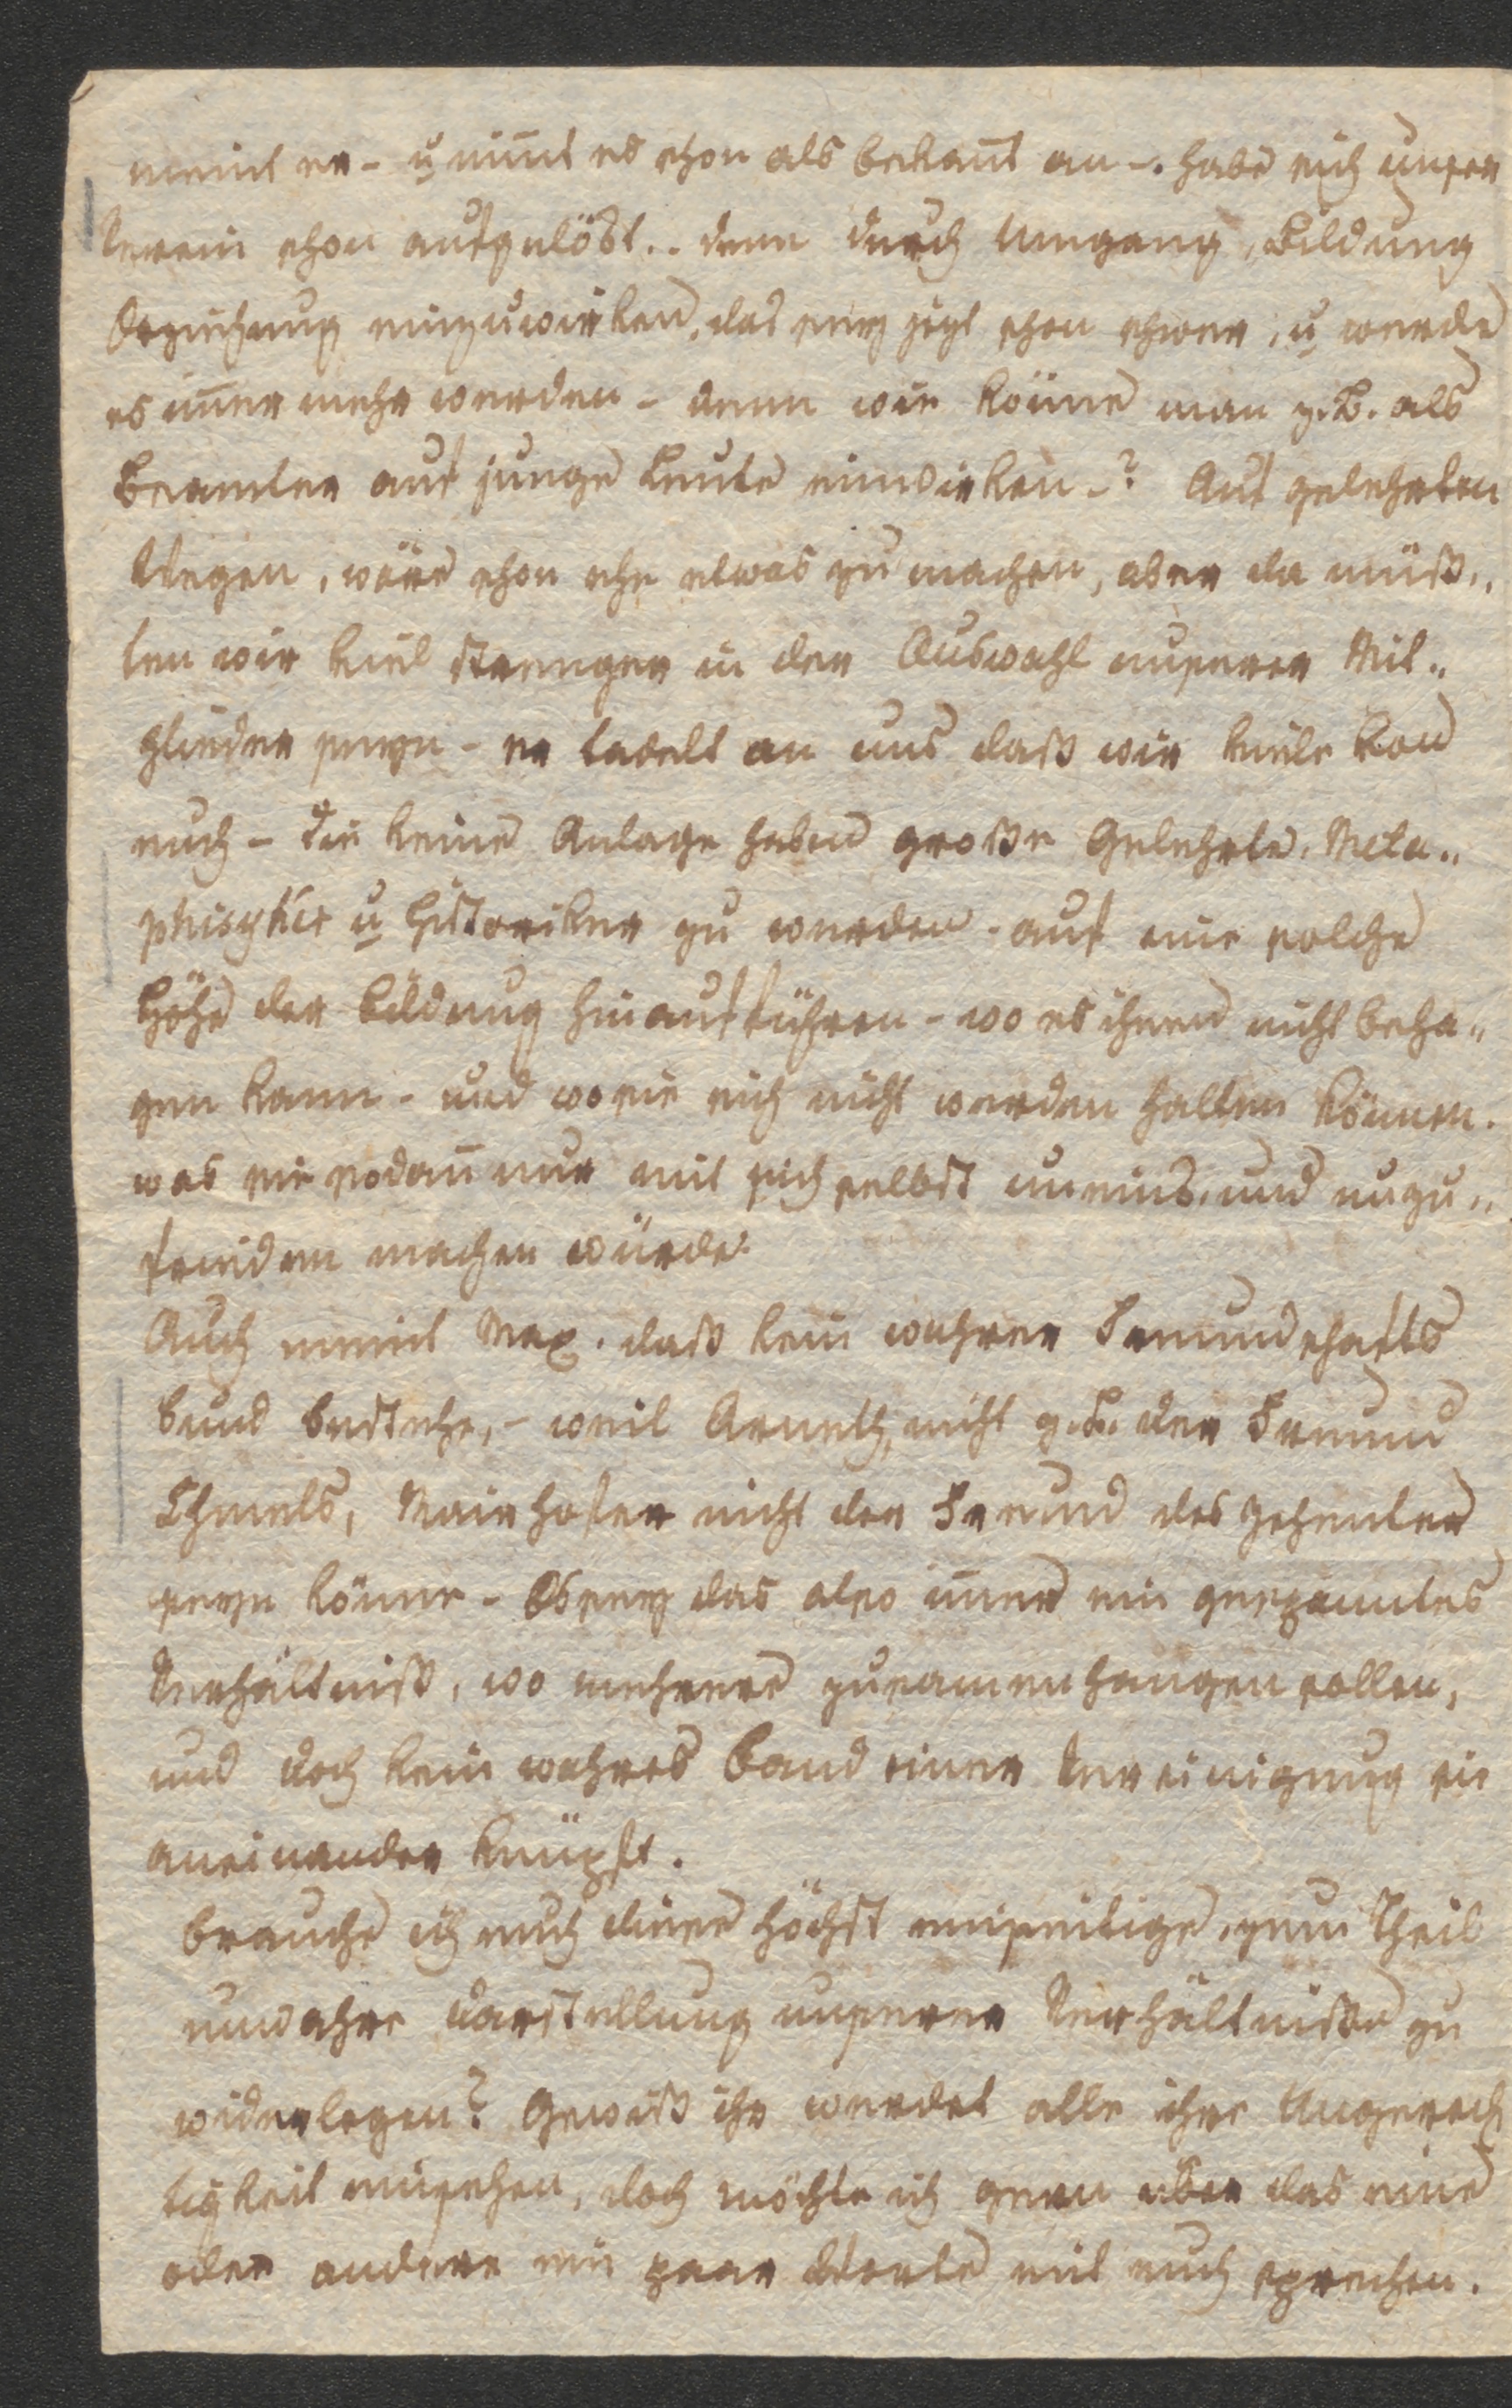 meint er - u nim̅t es schon als bekan̅t an -. habe sich unser
Verein schon aufgelöst.. denn durch Umgang, Bildung
Erziehung einzuwirken, das sey jezt schon schwer, u werde
es im̅er mehr werden - denn wie könne man z. B. als
Beamter auf junge Leute einwirken -? Auf gelehrten
Wegen, wäre schon ehr etwas zu machen, aber da müß„
ten wir viel strenger in der Auswahl unserer Mit„
glieder seyn - er tadelt an uns daß wir viele von
euch - die keine Anlage haben große Gelehrte, Meta„
phisyker u Historiker zu werden - auf eine solche
Höhe der Bildung hinaufführen - wo es ihnen nicht beha„
gen kann - und wo sie sich nicht werden halten können.
was sie sodan̅ nur mit sich selbst uneins, und unzu„
frieden machen würde.
Auch meint Max. daß kein wahrer Freundschafts
bund bestehe, - weil Arneth, nicht z. B. der Freund
Chmels, Mairhofer nicht der Freund des Zehenter
seyn könne - Es sey das also im̅er ein gespanntes
Verhältniß, wo mehrere zusamenhangen sollen,
und doch kein wahres Band einer Vereinigung sie
aneinander knüpft.
Brauche ich euch diese höchst einseitige, zum Theil
unwahre Darstellung unserer Verhältniße zu
widerlegen? Gewiß ihr werdet alle ihre Ungerech
tigkeit einsehen, doch möchte ich gern über das eine
oder andere ein paar Worte mit euch sprechen.